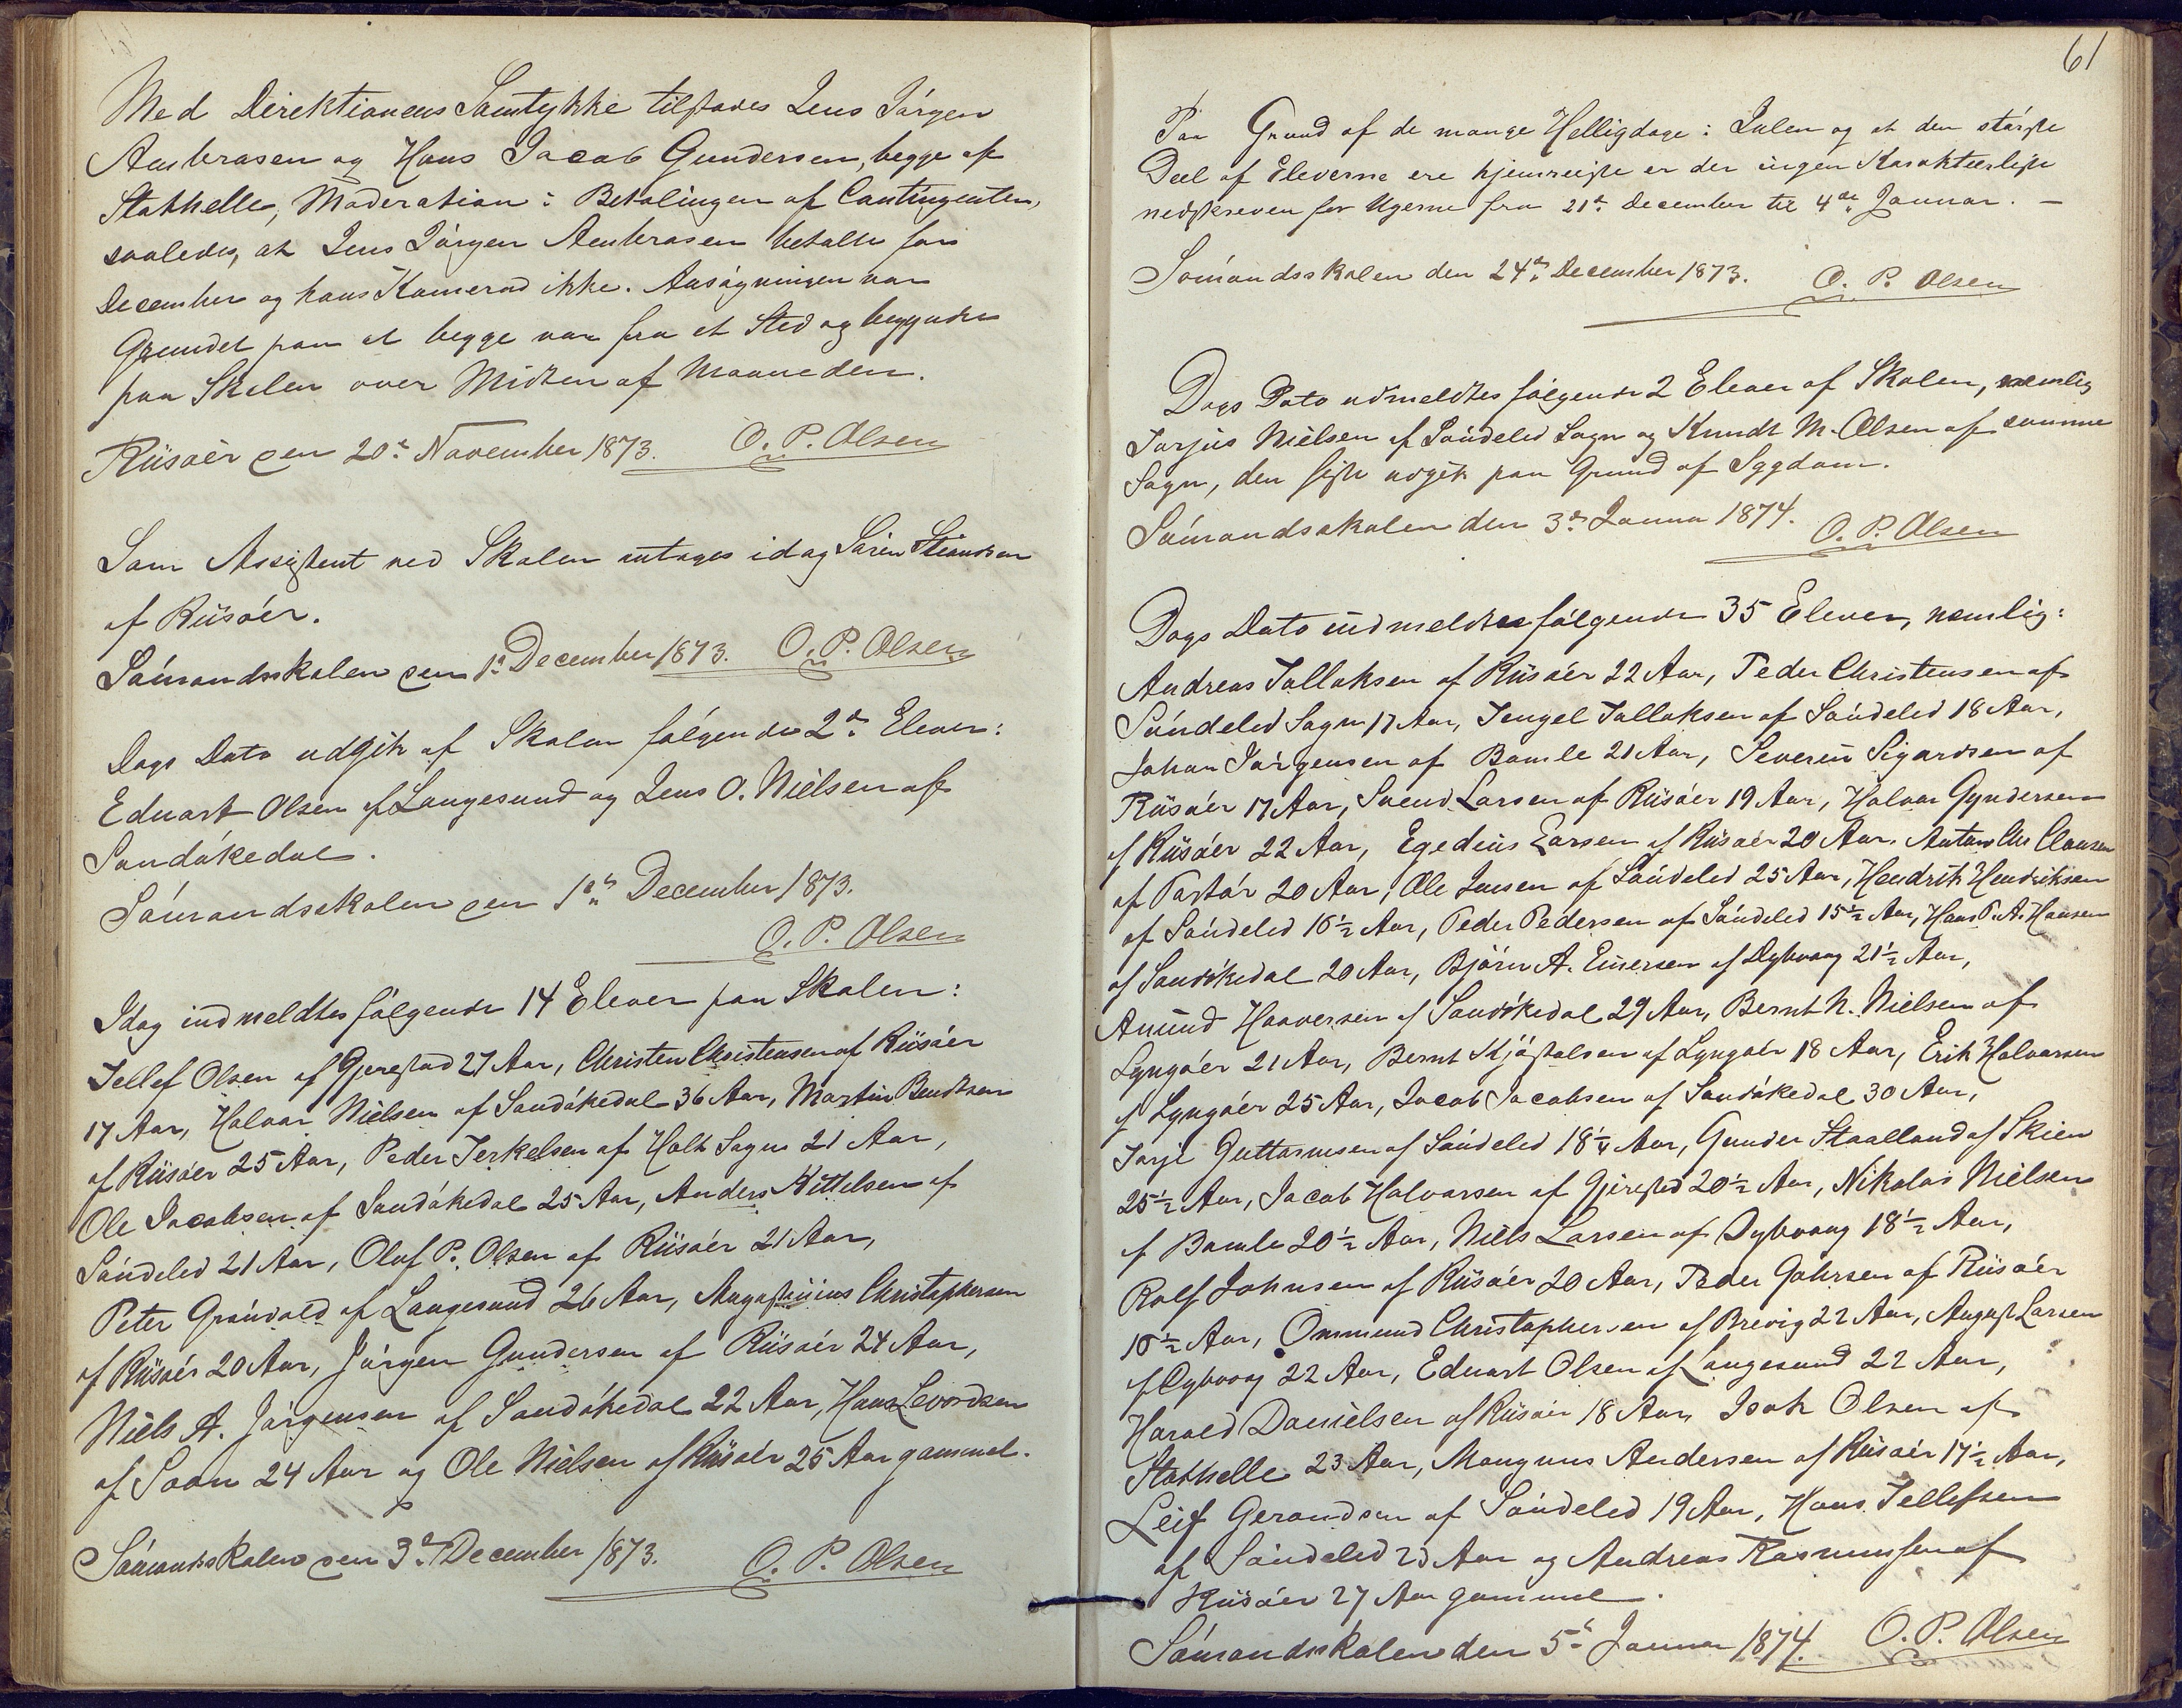 Med Direktionens Samtykke tilstodes Jens Jörgen
Ambrosen og Hans Jacob Gundersen, begge af
Stathelle, Moderation i Betalingen af Contingenten,
saaledes, at Jens Jörgen Ambrosen betalte for
December og hans Kamerad ikke. Ansögningen var
Grundet paa at begge var fra et Sted og begyndte
paa Skolen over Midten af Maaneden.
Riisöer den 20de November 1873. O. P. Olsen
Som Assistent ved Skolen antages idag Sören
af Riisöer.
Sömandsskolen den 1ste December 1873. O. P. Olsen
Dags Dato udgik af Skolen fölgende 2de Elever:
Eduart Olsen af Langesund og Jens O. Nielsen af
Sandökedal.
Sömandsskolen den 1ste December 1873.
O. P. Olsen
Idag indmeldtes fölgende 14 Elever paa Skolen:
Tellef Olsen af Gjerestad 27 Aar, Christen Christensen af Riisöer
17 Aar, Halvor Nielsen af Sandökedal 36 Aar, Martin Bendtsen
af Riisöer 25 Aar, Peder Terkelsen af Holt Sogn 21 Aar,
Ole Jacobsen af Sandökedal 25 Aar, Anders Kittelsen af
Söndeled 21 Aar, Oluf P. Olsen af Riisöer 21 Aar,
Peter Grönvold af Langesund 26 Aar, Augustinius Christophersen
af Riisöer 20 Aar, Jörgen Gundersen af Riisöer 24 Aar,
Niels A. Jörgensen af Sandökedal 22 Aar, Hans Levordsen
af Soon 24 Aar og Ole Nielsen af Riisöer 25 Aar gammel.
Sömandsskolen den 3de December 1873. O. P. Olsen
61
Paa Grund af de mange Helligdage i Julen og at den störste
Deel af Eleverne ere hjemreiste er der ingen Karakteerliste
nedskreven for Ugerne fra 21de December til 4de Januar. —
Sömandsskolen den 24de December 1873. O. P. Olsen
Dags Dato udmeldtes fölgende 2 Elever af Skolen, nemlig
Torjus Nielsen af Söndeled Sogn og Knudt M. Olsen af samme
Sogn, den sidste udgik paa Grund af Sygdom.
Sömandsskolen den 3de Januar 1874. O. P. Olsen
Dags Dato indmeldtes fölgende 35 Elever, nemlig:
Andreas Tallaksen af Riisöer 22 Aar, Peder Christensen af
Söndeled Sogn 17 Aar, Tengel Tallaksen af Söndeled 18 Aar,
Johan Jörgensen af Bamle 21 Aar, Severin Sigardsen af
Riisöer 17 Aar, Svend Larsen af Riisöer 19 Aar, Halvor Gyndersen
af Riisöer 22 Aar, Egedius Larsen af Riisöer 20 Aar, Anton Chr Clausen
af 20 Aar, Ole Jensen af Söndeled 25 Aar, Hendrik Hendriksen
af Söndeled 16½ Aar, Peder Pedersen af Söndeled 15½ Aar, Hans P. A. Hansen
af Sandökedal 20 Aar, Björn A. Einersen af Dybvaag 21½ Aar,
Amund Haaversen af Sandökedal 29 Aar, Bernt N. Nielsen af
Lyngöer 21 Aar, Bernt Kjöstolsen af Lyngöer 18 Aar, Erik Halvorsen
af Lyngöer 25 Aar, Jacob Jacobsen af Sandökedal 30 Aar,
Torje Guttormsen af Söndeled 18¼ Aar, Gunder Staalland af Skien
25½ Aar, Jacob Halvorsen af Gjerested 20½ Aar, Nikolai Nielsen
af Bamle 20½ Aar, Niels Larsen af Dybvaag 18½ Aar,
Rolf Johnsen af Riisöer 20 Aar, Peder Gahrsen af Riisöer
16½ Aar, Ommund Christophersen af Brevig 22 Aar, August Larsen
af Dybvaag 22 Aar, Eduart Olsen af Langesund 22 Aar,
Harald Danielsen af Riisöer 18 Aar, Isak Olsen af
Stathelle 23 Aar, Mangnus Andersen af Riisöer 17½ Aar,
Leif Gerandsen af Söndeled 19 Aar, Hans Tellefsen
af Söndeled 23 Aar og Andreas Rasmussen af
Riisöer 27 Aar gammel.
Sömandsskolen den 5te Januar 1874. O. P. Olsen